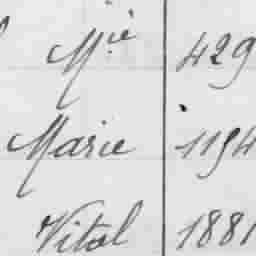 Mie 429
Marie 1194
Vital 1881